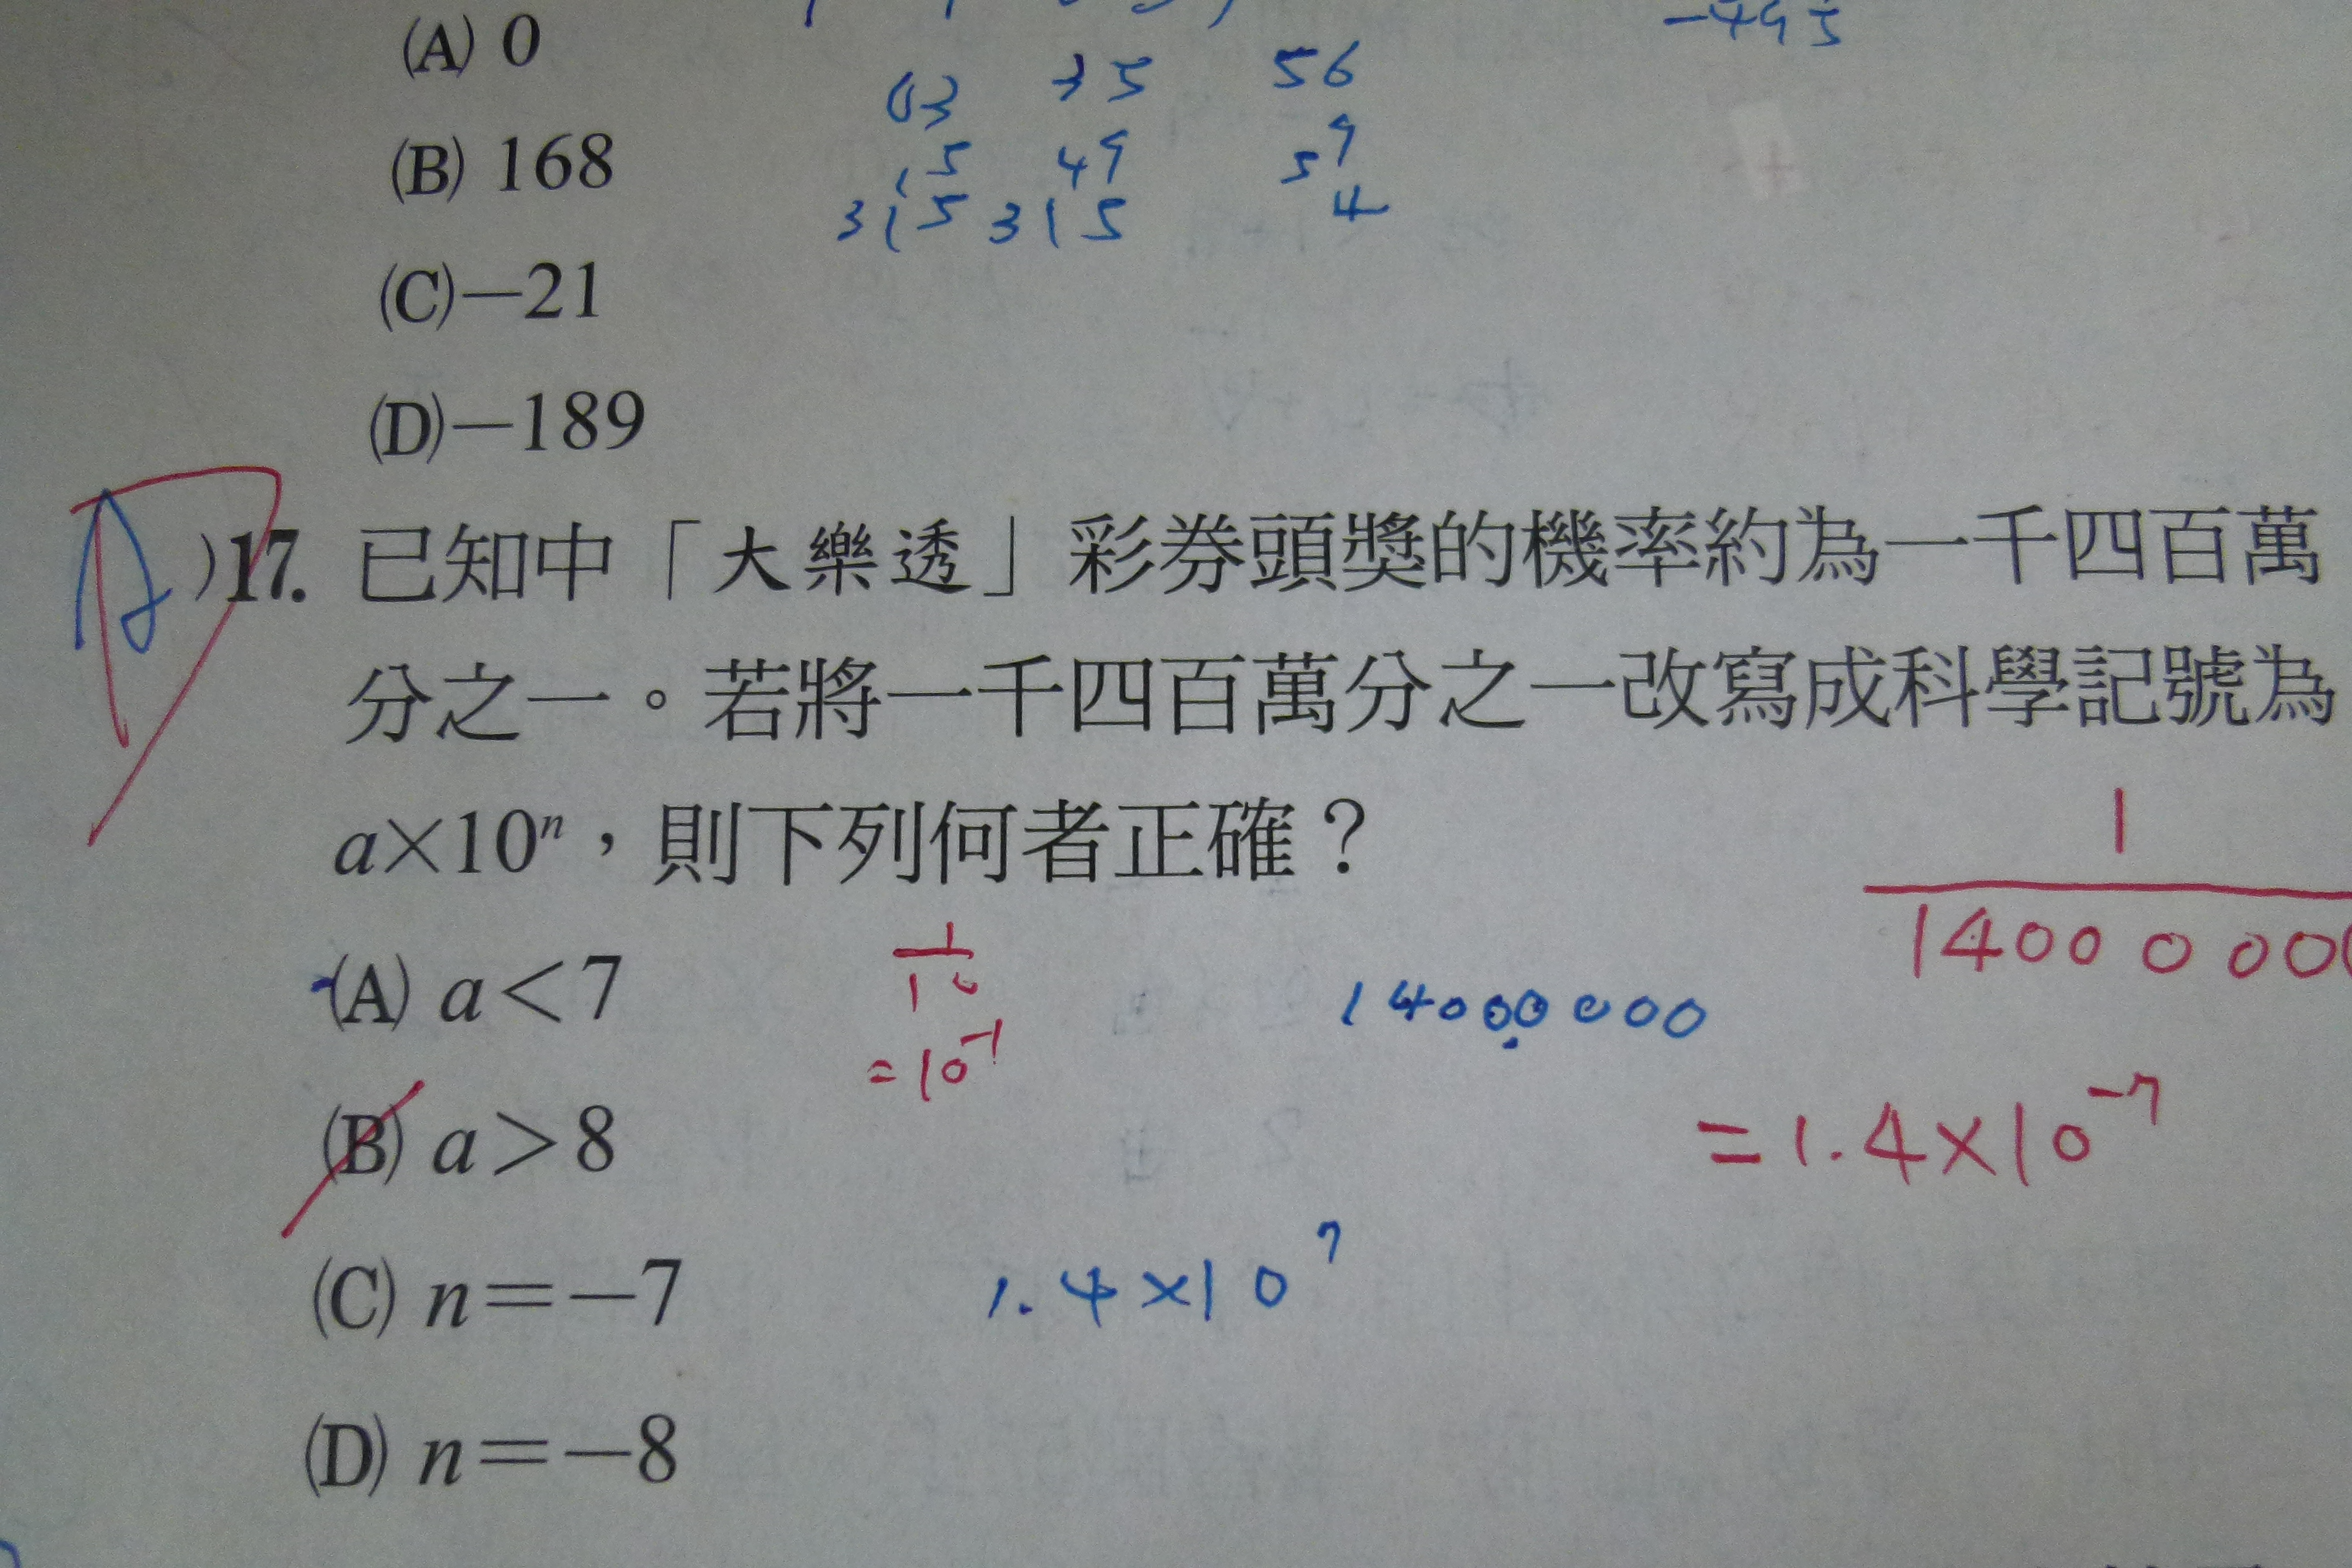 -495
(A) 0
63 35 56
(B) 168
15 49 59
315 315 4
(C)-21
(D)-189
A )17. 已知中「大樂透」彩券頭獎的機率約為一千四百萬
分之一。若將一千四百萬分之一改寫成科學記號為
a×10ⁿ,則下列何者正確?
1
1400 0 00
(A) a<7
1
10
=10⁻¹
14000000
(B) a>8
=1.4×10⁻⁷
(C) n=-7
1.4×10⁷
(D) n=-8